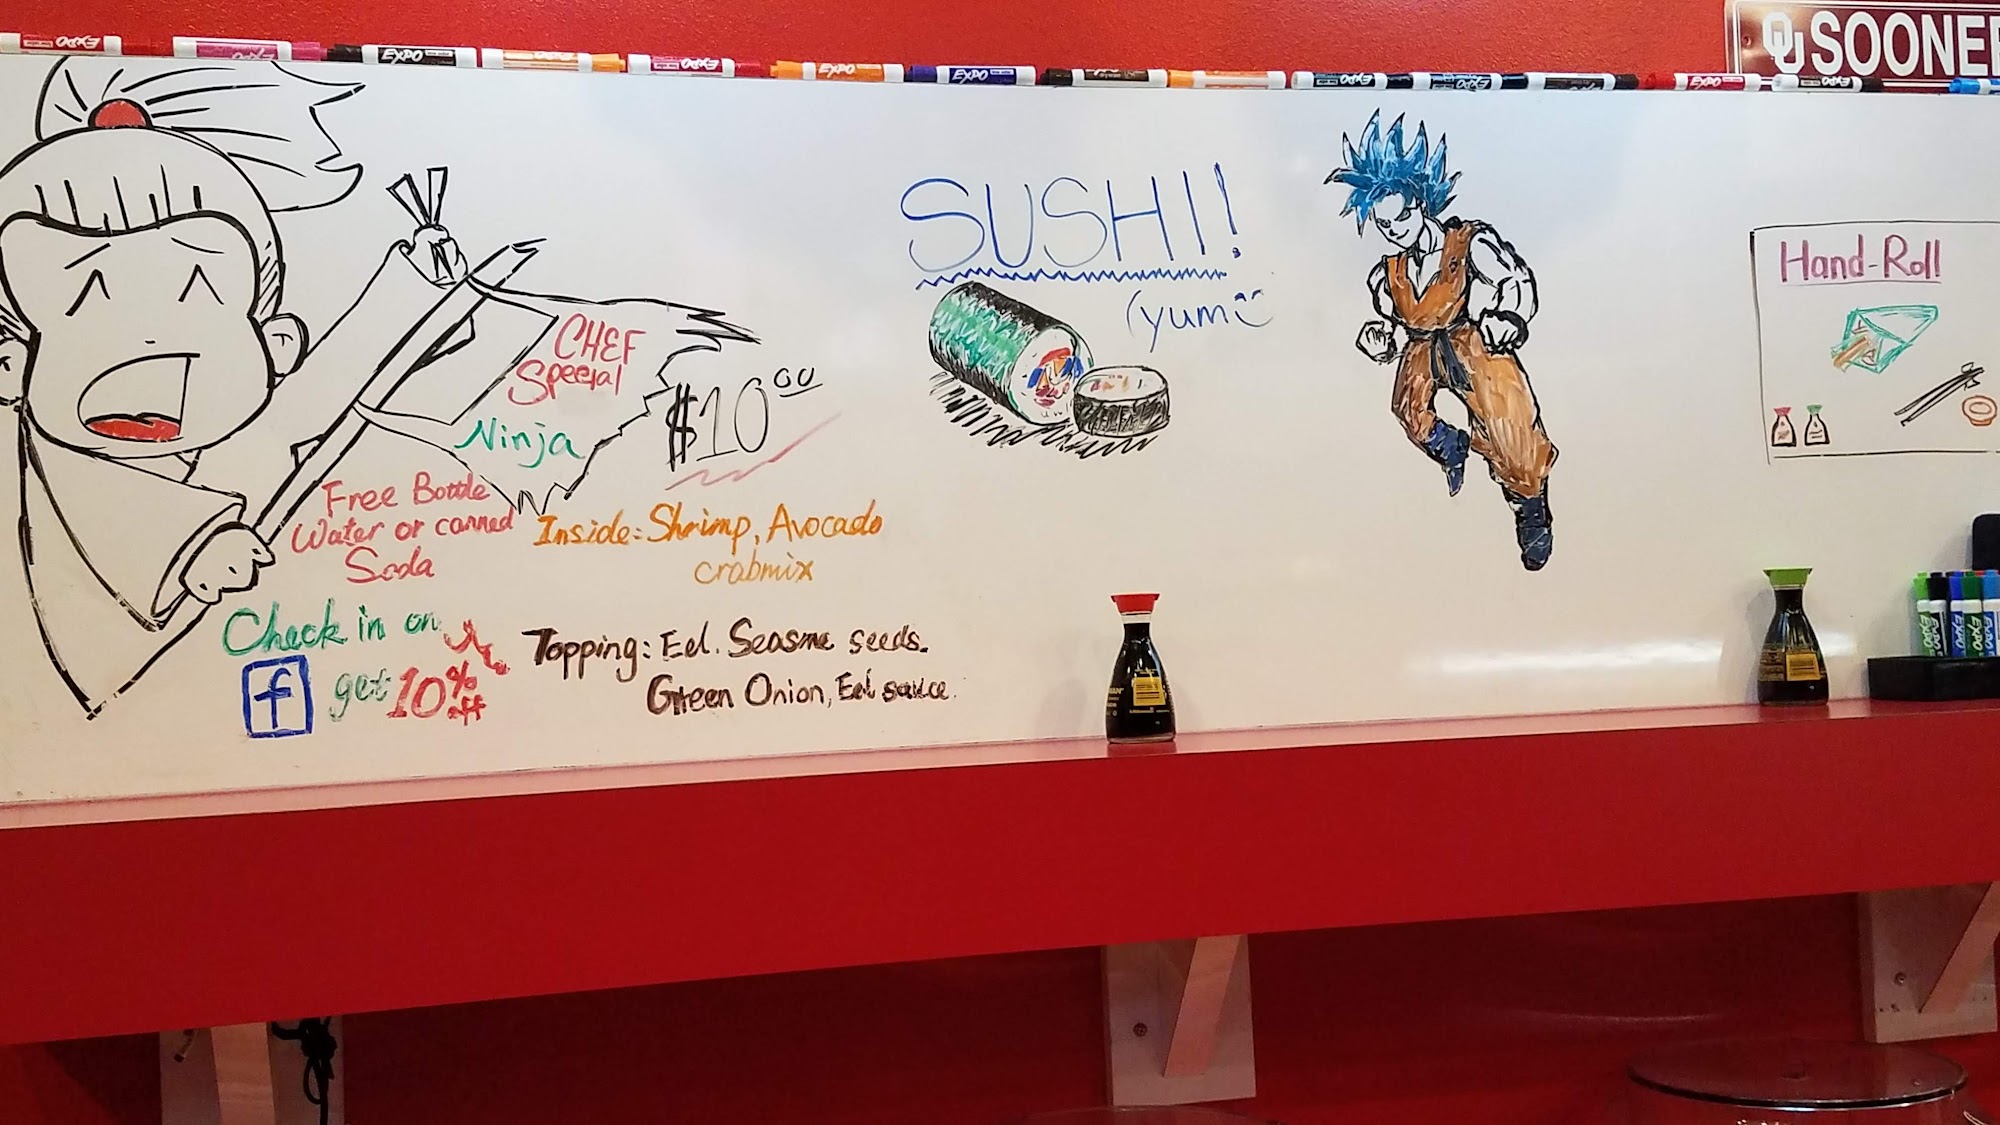 EXPO
EXPO
EXPO
EXPO
EXPO
EXPO
EXPO
EXPO
EXPO
EXPO
OU SOONER
CHEF
Special
Ninja
$10.00
Free Bottle
Water or canned
Soda
Inside: Shrimp, Avocado
crabmix
Check in on
f get 10% off
Topping: Eel. Seasme seeds.
Green Onion, Eel sauce.
SUSHI!
(yum
Hand-Roll
EXPO
EXPO
EXPO
EXPO